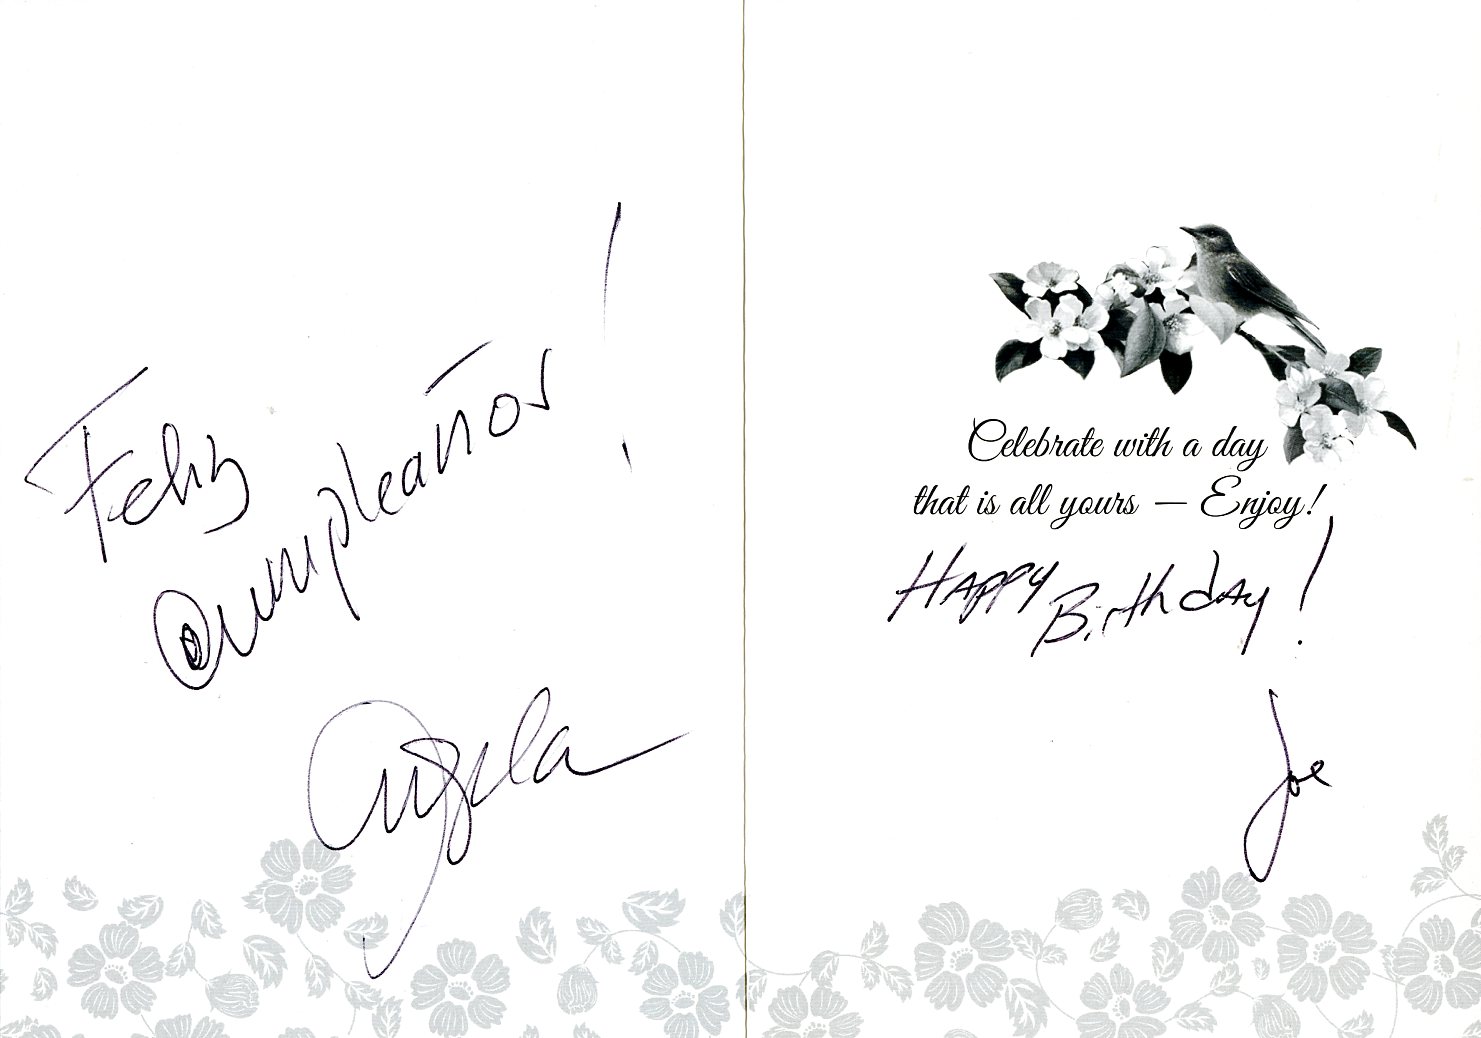 Feliz
Cumpleaños!
Angela
Celebrate with a day
that is all yours — Enjoy!
HAPPY Birthday!
Joe